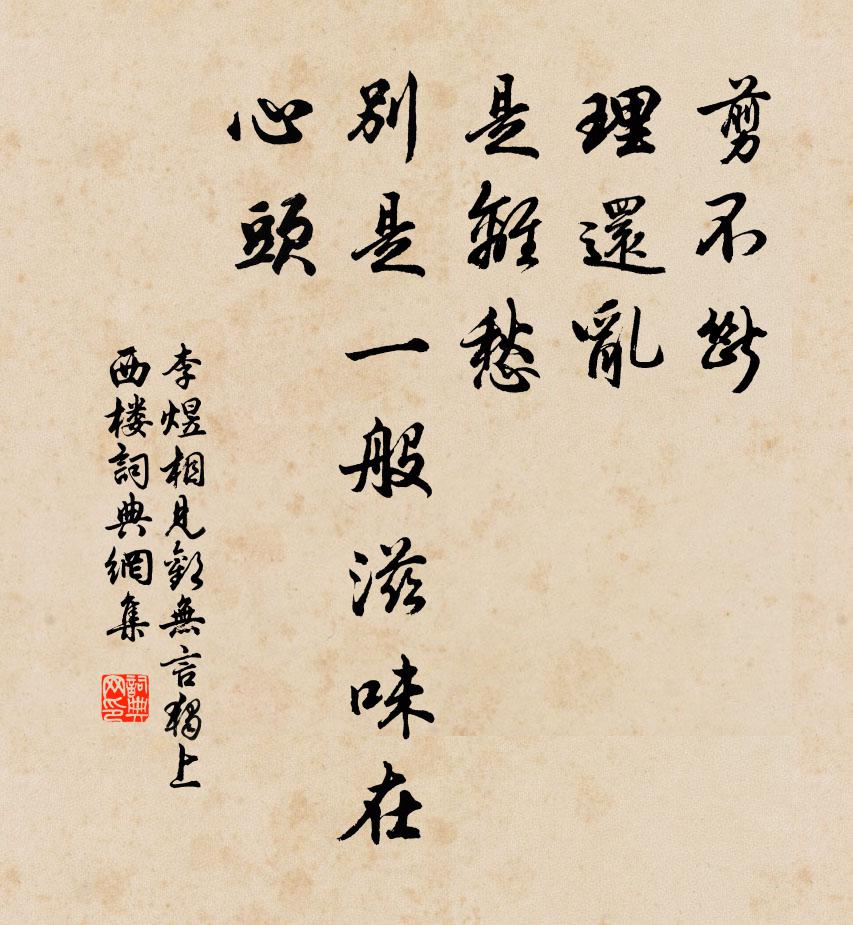 剪不斷
理還亂
是離愁
別是一般滋味在
心頭
李煜相見歡無言獨上
西楼詞典網集
詞典网印